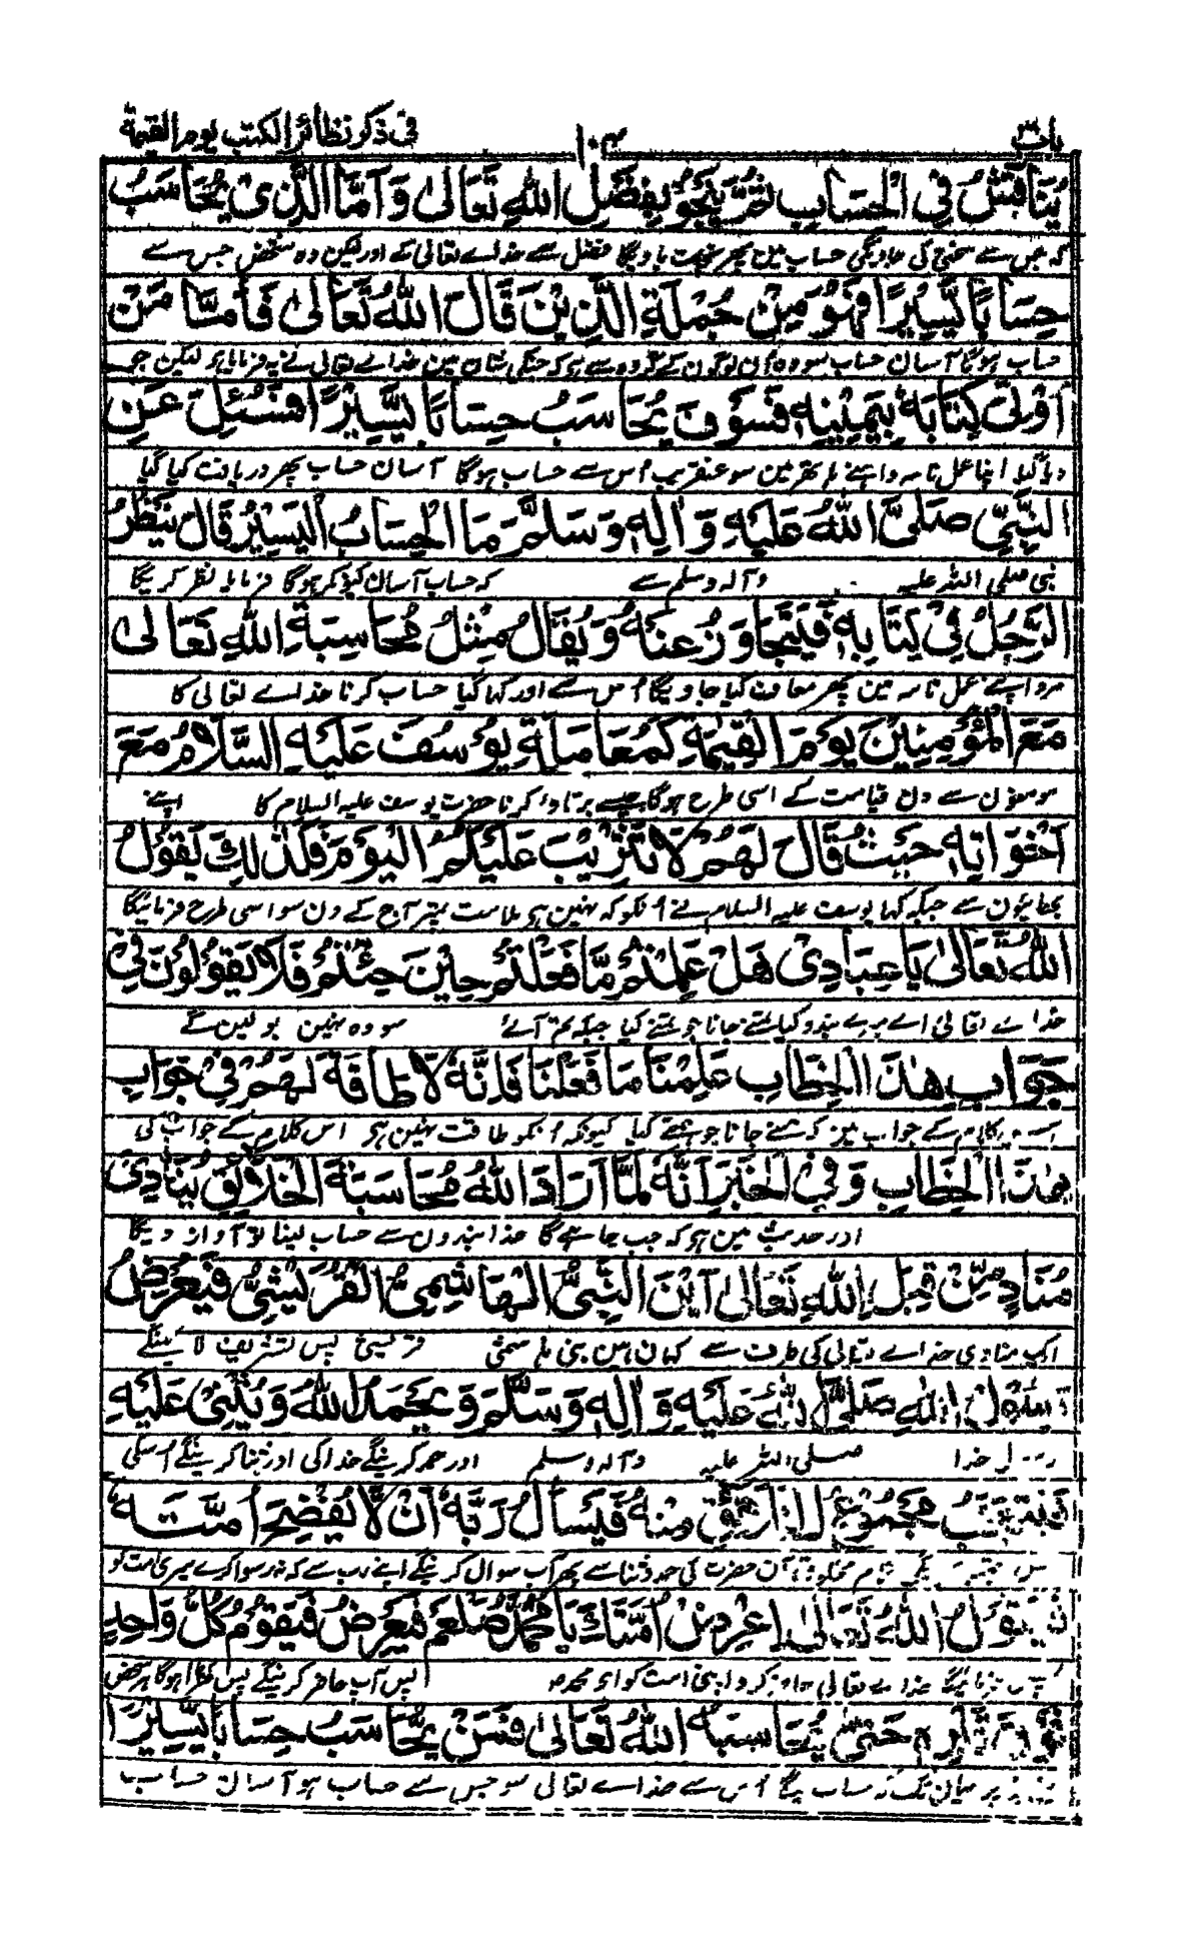 باب ۳ ۱۰۳ فی ذکر نظائر الکتب یوم القیمة
یُنَاقَشُ فِی الْحِسَابِ ثُمَّ یَنْجُوْ بِفَضْلِ اللهِ تَعَالٰی وَاَمَّا الَّذِیْ یُحَاسَبُ
کہ جس سے سختی کی جاویگی حساب مین پھر نجات پاویگا فضل سے خداے تعالی کے اور لیکن وہ شخص جس سے
حِسَابًا یَّسِیْرًا فَهُوَ مِنْ جُمْلَةِ الَّذِیْنَ قَالَ اللهُ تَعَالٰی فَاَمَّا مَنْ
حساب ہوگا آسان حساب سو وہ اُن لوگون کے گروہ سے ہے کہ جنکی شان مین خداے تعالی نے یہ فرمایا ہے لیکن جو
اُوْتِیَ کِتَابَهٗ بِیَمِیْنِهٖ فَسَوْفَ یُحَاسَبُ حِسَابًا یَّسِیْرًا فَسُئِلَ عَنِ
دیا گیا اپنا عمل نامہ داہنے ہاتھ مین سو عنقریب اُس سے حساب ہوگا آسان حساب پھر دریافت کیا گیا
النَّبِیِّ صَلَّی اللهُ عَلَیْهِ وَاٰلِهٖ وَسَلَّمَ مَا الْحِسَابُ الْیَسِیْرُ قَالَ یَنْظُرُ
نبی صلی اللہ علیہ وآلہ وسلم سے کہ حساب آسان کیونکر ہوگا فرمایا نظر کریگا
الرَّجُلُ فِیْ کِتَابِهٖ فَیُتَجَاوَزُ عَنْهُ وَیُقَالُ مِثْلُ مُحَاسِبَةِ اللهِ تَعَالٰی
مرد اپنے عمل نامہ مین پھر معاف کیا جاویگا اُس سے اور کہا گیا حساب کرنا خداے تعالی کا
مَعَ الْمُؤْمِنِیْنَ یَوْمَ الْقِیٰمَةِ کَمُعَامَلَةِ یُوْسُفَ عَلَیْهِ السَّلَامُ مَعَ
مومنون سے دن قیامت کے اسی طرح ہوگا جیسے برتاوا کرنا حضرت یوسف علیہ السلام کا اپنے
اِخْوَانِهٖ حَیْثُ قَالَ لَهُمْ لَا تَثْرِیْبَ عَلَیْکُمُ الْیَوْمَ فَکَذٰلِكَ یَقُوْلُ
بھائیون سے جبکہ کہا یوسف علیہ السلام نے اُنکو کہ نہین ہے ملامت تمپر آج کے دن سو اسی طرح فرمائیگا
اللهُ تَعَالٰی یَا عِبَادِیْ هَلْ عَلِمْتُمْ مَّا فَعَلْتُمْ حِیْنَ جِئْتُمْ فَلَا یَقُوْلُوْنَ فِیْ
خداے تعالی اے میرے بندو کیا تمنے جانا جو تمنے کیا جبکہ تم آئے سو وہ نہین بولین گے
جَوَابِ هٰذَا الْخِطَابِ عَلِمْنَا مَا فَعَلْنَا فَاِنَّهٗ لَا طَاقَةَ لَهُمْ فِیْ جَوَابِ
اس کلام کے جواب مین کہ ہمنے جانا جو ہمنے کیا کیونکہ اُنکو طاقت نہین ہے اس کلام کے جواب کی
هٰذَا الْخِطَابِ وَفِی الْخَبَرِ اَنَّهٗ لَمَّا اَرَادَ اللهُ مُحَاسَبَةَ الْخَلَائِقِ یُنَادِیْ
اور حدیث مین ہے کہ جب چاہےگا خدا بندون سے حساب لینا تو آواز دیگا
مُنَادٍ مِّنْ قِبَلِ اللهِ تَعَالٰی اَیْنَ النَّبِیُّ الْهَاشِمِیُّ الْقُرَیْشِیُّ فَیَعْرِضُ
ایک منادی خداے تعالی کی طرف سے کہان ہین نبی ہاشمی قریشی پس تشریف لائینگے
رَسُوْلُ اللهِ صَلَّی اللهُ عَلَیْهِ وَاٰلِهٖ وَسَلَّمَ وَیَحْمَدُ اللهَ وَیُثْنِیْ عَلَیْهِ
رسول خدا صلی اللہ علیہ وآلہ وسلم اور حمد کرینگے خدا کی اور ثنا کرینگے اُسکی
مِنْهُ فَیَسْأَلُ رَبَّهٗ اَنْ لَّا یُفْضِحَ اُمَّتَهٗ
آن حضرت کی حمد و ثنا سے پھر آپ سوال کرینگے اپنے رب سے کہ نہ رسوا کرے میری امت کو
فَیَقُوْلُ اللهُ تَعَالٰی اِعْرِضْ اُمَّتَكَ یَا مُحَمَّدُ صلعم فَیَعْرِضُ فَیَقُوْمُ کُلُّ وَاحِدٍ
خداے تعالی حاضر کرو اپنی امت کو اے محمد پس آپ حاضر کرینگے پس کھڑا ہوگا ہر شخص
حَتّٰی یُحَاسِبَهُ اللهُ تَعَالٰی فَمَنْ یُّحَاسَبُ حِسَابًا یَّسِیْرًا
اُس سے خداے تعالی سو جس سے حساب ہو آسان حساب